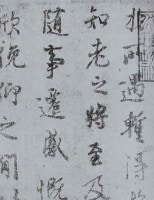 於所遇暫得
知老之將至及
隨事遷感慨
欣俛仰之閒